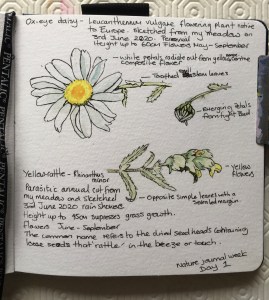 Ox-eye daisy - Leucanthemum vulgare flowering plant native
to Europe. Sketched from my meadow on
3rd June 2020. Perennial
Height up to 60cm Flowers May - September
white petals radiate out from yellow centre
composite flower
Toothed leaves
Emerging petals
from tight bud
Yellow rattle - Rhinanthus
minor
Yellow
flowers
Opposite simple leaves with a
serrated margin.
Parasitic annual cut from
my meadow and sketched
3rd June 2020 rain showers
Height up to 45cm supresses grass growth.
Flowers June - September
The common name refers to the dried seed heads containing
loose seeds that 'rattle' in the breeze or touch.
Nature journal week
Day 1